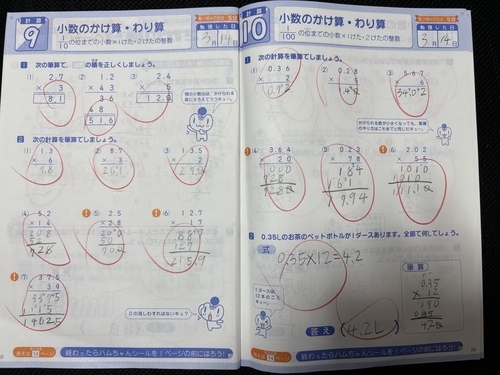 計算
9
小数のかけ算・わり算
1/10の位までの小数×1けた・2けたの整数
勉強した日
3月14日
1 次の筆算で、
の積を正しくしましょう。
(1) 2.7
× 3
8.1
(2) 1.2
× 4 3
3 6
4 8
5 1.6
(3) 2.4
× 5
12.0
2 次の計算を筆算でしましょう。
(1) 1.3
× 6
7.8
(2) 8.7
× 3
26.1
(3) 13.5
× 2
27.0
(4) 5.2
× 1 4
208
52
72.8
(5) 2.5
× 2 8
200
50
70.0
(6) 12.7
× 1 7
889
127
215.9
(7) 37.5
× 3 9
3375
1125
1462.5
0の消しわすれはないキュ?
答えは14ページ
終わったらハムちゃんシールを1ページの前にはろう!
計算
10
小数のかけ算・わり算
の位までの小数×1けた・2けたの整数
勉強した日
3月14日
1 次の計算を筆算でしましょう。
(1) 0.36
× 2
0.72
(2) 0.28
× 5
(3) 5.67
× 6
34.02
(4) 3.64
× 2 0
000
728
(5) 0.23
× 7 8
184
161
17.94
(6) 2.02
× 5 5
1010
1010
2 0.35Lのお茶のペットボトルが1ダースあります。全部で何Lでしょう。
式
0.35×12=4.2
1ダースは、12本のことキュ。
筆算
0.35
× 12
答え(4.2L)
答えは14ページ
終わったらハムちゃんシールを1ページの前にはろう!